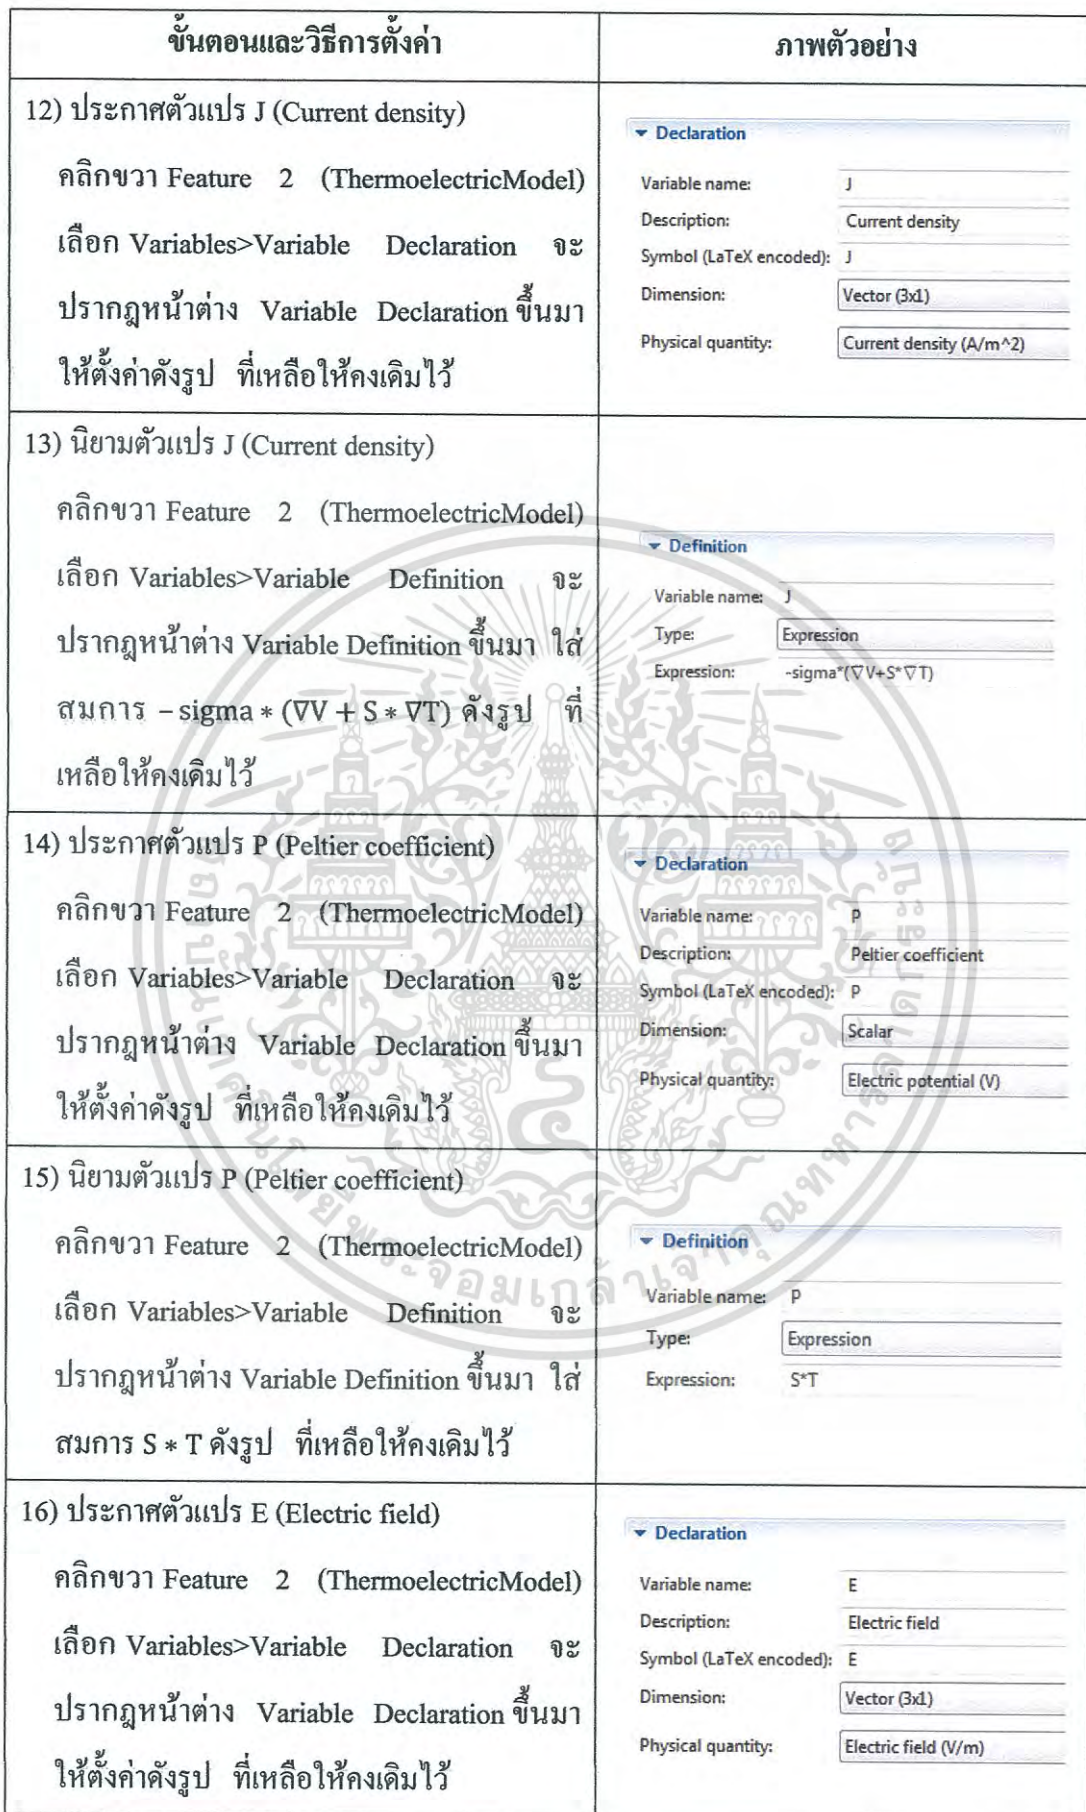 ขั้นตอนและวิธีการตั้งค่า
ภาพตัวอย่าง
12) ประกาศตัวแปร J (Current density)
คลิกขวา Feature 2 (ThermoelectricModel)
เลือก Variables>Variable Declaration จะ
ปรากฎหน้าต่าง Variable Declaration ขึ้นมา
ให้ตั้งค่าดังรูป ที่เหลือให้คงเดิมไว้
Declaration
Variable name: J
Description: Current density
Symbol (LaTeX encoded): J
Dimension: Vector (3x1)
Physical quantity: Current density (A/m^2)
13) นิยามตัวแปร J (Current density)
คลิกขวา Feature 2 (ThermoelectricModel)
เลือก Variables>Variable Definition จะ
ปรากฎหน้าต่าง Variable Definition ขึ้นมา ใส่
สมการ − sigma ∗ (∇V + S ∗ ∇T) ดังรูป ที่
เหลือให้คงเดิมไว้
Definition
Variable name: J
Type: Expression
Expression: -sigma*(∇V+S*∇T)
14) ประกาศตัวแปร P (Peltier coefficient)
คลิกขวา Feature 2 (ThermoelectricModel)
เลือก Variables>Variable Declaration จะ
ปรากฎหน้าต่าง Variable Declaration ขึ้นมา
ให้ตั้งค่าดังรูป ที่เหลือให้คงเดิมไว้
Declaration
Variable name: P
Description: Peltier coefficient
Symbol (LaTeX encoded): P
Dimension: Scalar
Physical quantity: Electric potential (V)
15) นิยามตัวแปร P (Peltier coefficient)
คลิกขวา Feature 2 (ThermoelectricModel)
เลือก Variables>Variable Definition จะ
ปรากฎหน้าต่าง Variable Definition ขึ้นมา ใส่
สมการ S ∗ T ดังรูป ที่เหลือให้คงเดิมไว้
Definition
Variable name: P
Type: Expression
Expression: S*T
16) ประกาศตัวแปร E (Electric field)
คลิกขวา Feature 2 (ThermoelectricModel)
เลือก Variables>Variable Declaration จะ
ปรากฎหน้าต่าง Variable Declaration ขึ้นมา
ให้ตั้งค่าดังรูป ที่เหลือให้คงเดิมไว้
Declaration
Variable name: E
Description: Electric field
Symbol (LaTeX encoded): E
Dimension: Vector (3x1)
Physical quantity: Electric field (V/m)
สถาบันเทคโนโลยีพระจอมเกล้าเจ้าคุณทหารลาดกระบัง